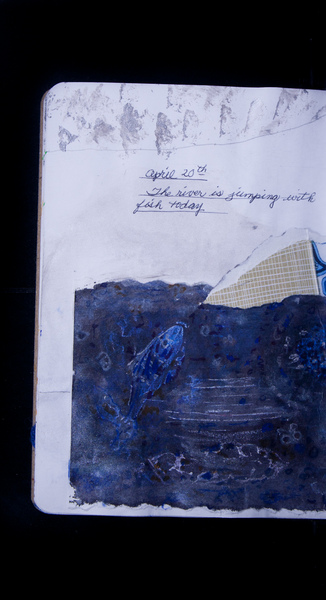 April 20th
The river is jumping with
fish today.